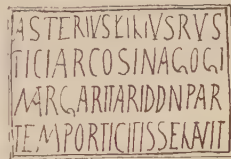 ASTERIVS FILIVS RVS
TICI ARCOSINAGOGI
MARGARITARI DDN PAR
TEM PORTICI TISSELAVIT